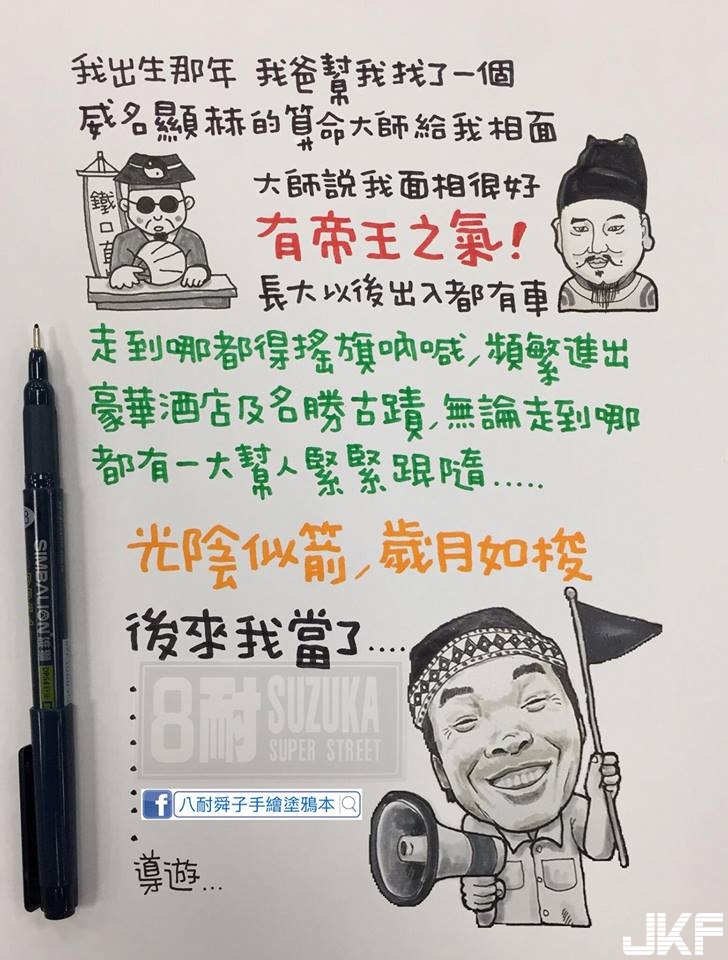 我出生那年 我爸幫我找了一個
威名顯赫的算命大師給我相面
大師說我面相很好
鐵口直
有帝王之氣!
長大以後出入都有車
走到哪都得搖旗吶喊,頻繁進出
豪華酒店及名勝古蹟,無論走到哪
都有一大幫人緊緊跟隨.....
光陰似箭,歲月如梭
後來我當了....
8耐 SUZUKA
SUPER STREET
八耐舜子手繪塗鴉本
導遊...
SIMBALION 雄獅
JKF